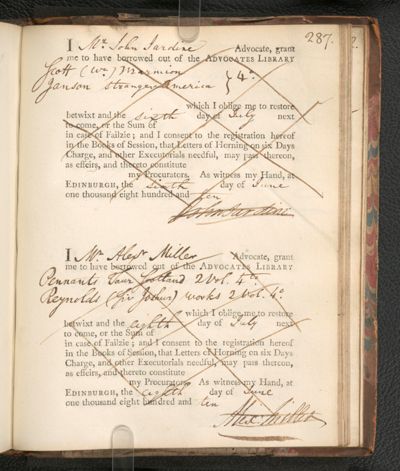 287.
I Mr. John Jardine Advocate, grant
me to have borrowed out of the ADVOCATES LIBRARY
Scott (Wm) Marmion
Janson Stranger America } 4o.
which I oblige me to restore
betwixt and the sixth day of July next
to come, or the Sum of
in case of Failzie; and I consent to the registration hereof
in the Books of Session, that Letters of Horning on six Days
Charge, and other Executorials needful, may pass thereon,
as effeirs, and thereto constitute
my Procurators. As witness my Hand, at
EDINBURGH, the sixth day of June
one thousand eight hundred and ten
John Jardine
I Mr. Alexr. Miller Advocate, grant
me to have borrowed out of the ADVOCATES LIBRARY
Pennants Tour Scotland 2 Vol. 4o.
Reynolds (Sir Joshua) works 2 Vol. 4o.
which I oblige me to restore
betwixt and the eighth day of July next
to come, or the Sum of
in case of Failzie; and I consent to the registration hereof
in the Books of Session, that Letters of Horning on six Days
Charge, and other Executorials needful, may pass thereon,
as effeirs, and thereto constitute
my Procurators. As witness my Hand, at
EDINBURGH, the eighth day of June
one thousand eight hundred and ten
Alex Miller